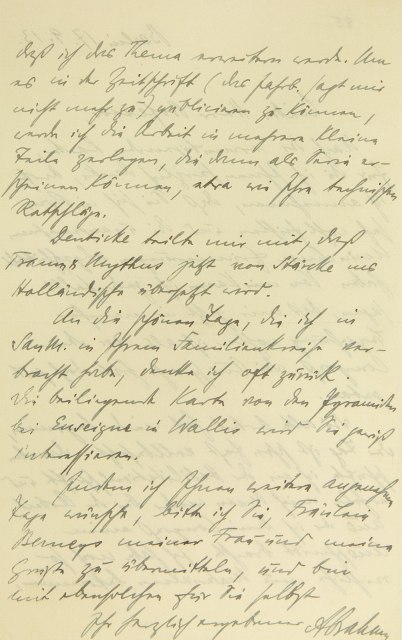 daß ich das Thema erweitern werde. Um
es in der Zeitschrift (das Jahrb. sagt mir
nicht mehr zu) publicieren zu können,
werde ich die Arbeit in mehrere kleine
Teile zerlegen, die dann als Serie er-
scheinen können, etwa wie Ihre technischen
Ratschläge.
Deuticke teilte mir mit, daß
Traum & Mythus jetzt von Stärcke ins
Holländische übersetzt wird.
An die schönen Tage, die ich in
San M. in Ihrem Familienkreise ver-
bracht habe, denke ich oft zurück.
Die beiliegende Karte von den Pyramiden
bei Euseigne in Wallis wird Sie gewiß
interessieren.
Indem ich Ihnen weitere angenehme
Tage wünsche, bitte ich Sie, Fräulein
Bernays meiner Frau und meine
Grüße zu übermitteln, und bin
mit ebensolchen für Sie selbst
Ihr herzlich ergebener Abraham